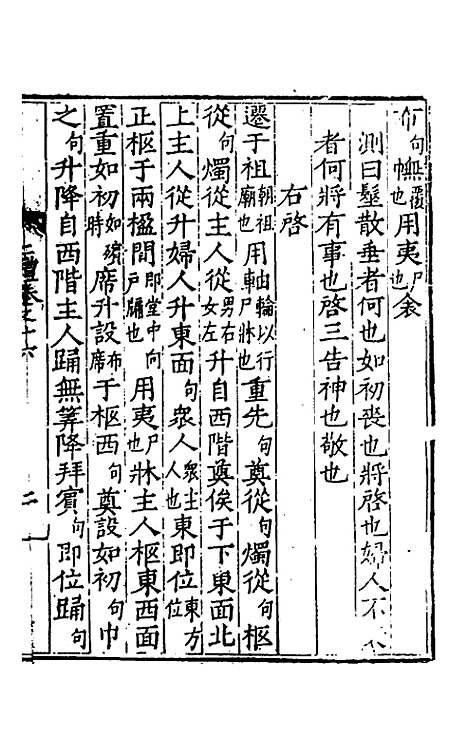 布句幠覆也用夷尸也衾
測曰髽散垂者何也如初喪也將啓也婦人不
者何將有事也啓三告神也敬也
右啓
遷于祖朝祖廟也用軸輪以行尸牀也重先句奠從句燭從句柩
從句燭從主人從男右女左升自西階奠俟于下東面北
上主人從升婦人升東面句衆人衆主人也東即位東方位
正柩于兩楹間即堂中向戶牖也用夷尸也牀主人柩東西面
置重如初如殯時席升設布席于柩西句奠設如初句巾
之句升降自西階主人踊無筭降拜賓句即位踊句
禮卷之十六 二